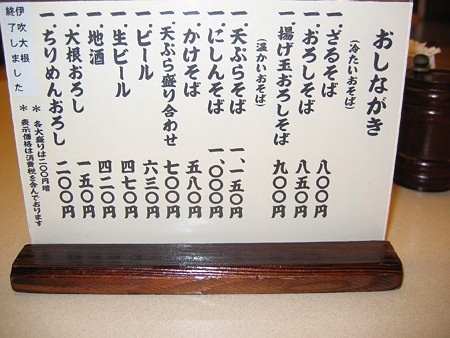 おしながき
(冷たいおそば)
一.ざるそば 八〇〇円
一.おろしそば 八五〇円
一.揚げ玉おろしそば 九〇〇円
(温かいおそば)
一.天ぷらそば 一、一五〇円
一.にしんそば 一、〇〇〇円
一.かけそば 五八〇円
一.天ぷら盛り合わせ 七〇〇円
一.ビール 六三〇円
一.生ビール 四七〇円
一.地酒 四二〇円
一.大根おろし 一五〇円
一.ちりめんおろし 二〇〇円
＊ 各大盛りは二〇〇円増
＊ 表示価格は消費税を含んでおります
伊吹大根
終了しました